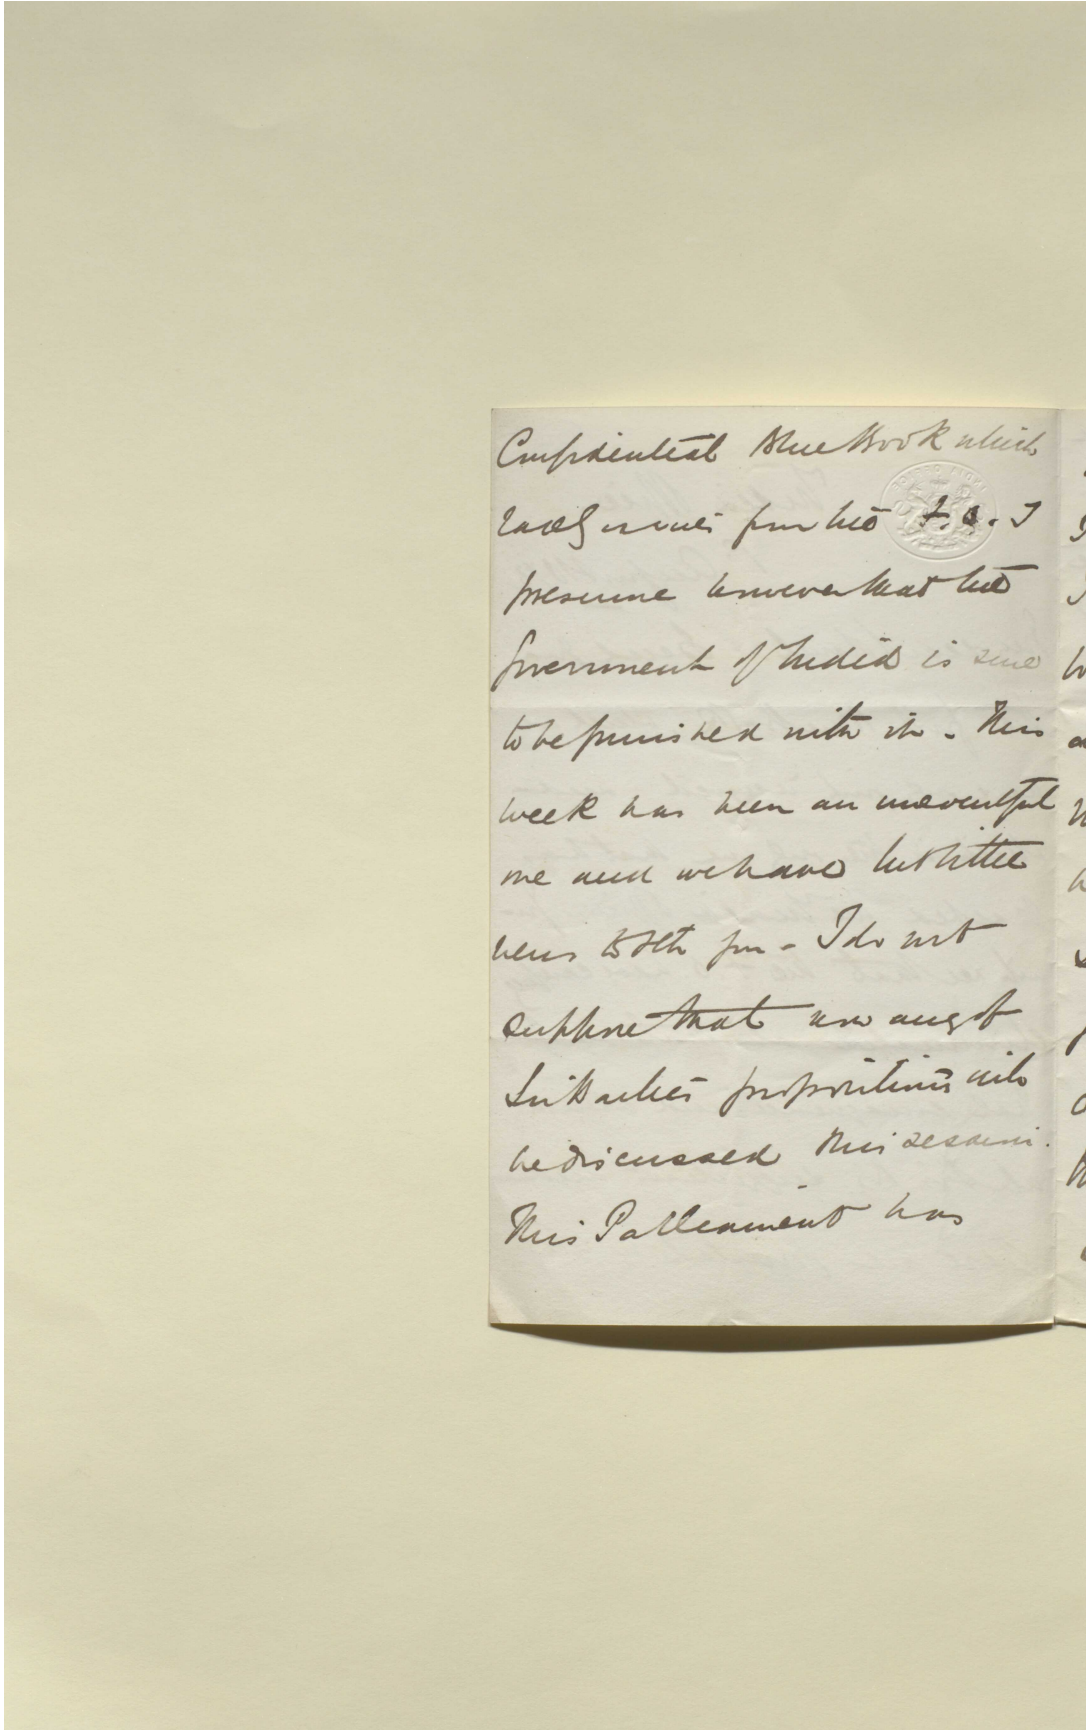 Confidential Blue Book which
rarely issues from the F.O. I
presume however that the
Government of India is sure
to be furnished with it - This
week has been an uneventful
one and we have but little
news to tell you - I do not
suppose that now any of
Sir Bartle's propositions will
be discussed this session.
This Parliament has